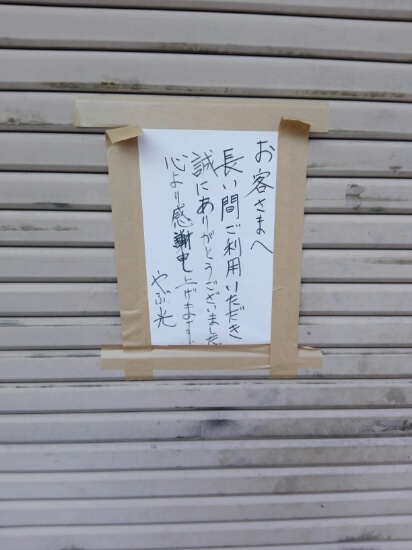 お客さまへ
長い間ご利用いただき
誠にありがとうございました
心より感謝申し上げます。
やぶ光